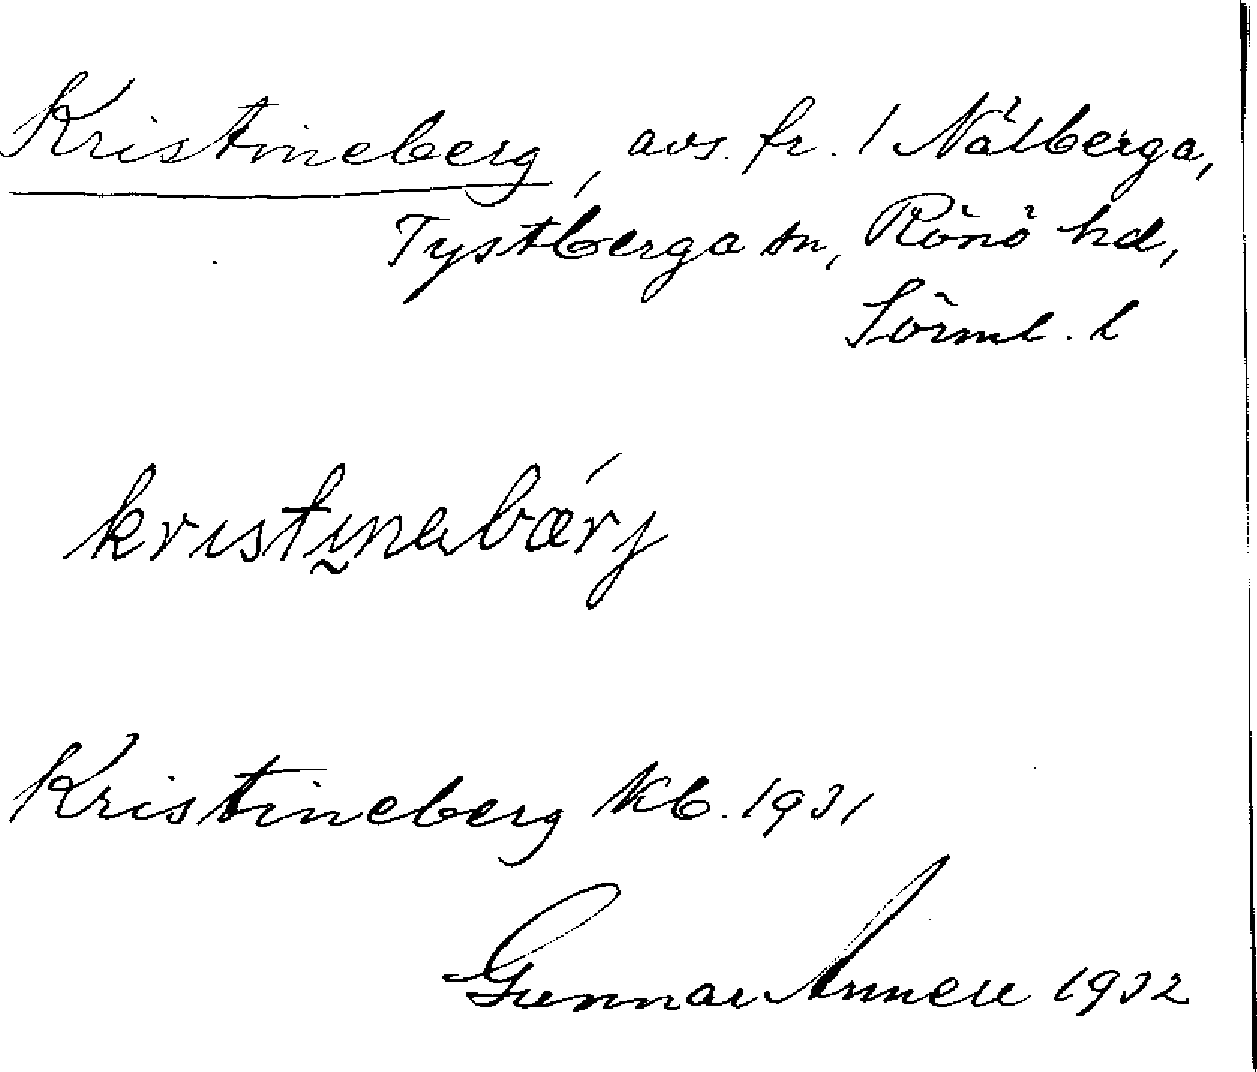 Kristineberg, avs. fr. 1 Nälberga,
Tystberga sn, Rönö hd,
Sörml. l
kristınabærj
Kristineberg Kb. 1931
Gunnar Annell 1932